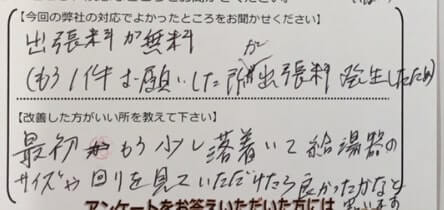 【今回の弊社の対応でよかったところをお聞かせください】
出張料が無料
(もう1件お願いした所が出張料発生したため)
【改善した方がいい所を教えて下さい】
最初もう少し落着いて給湯器の
サイズや回りを見ていただけたら良かったかなと
思います
アンケートをお答えいただいた方には